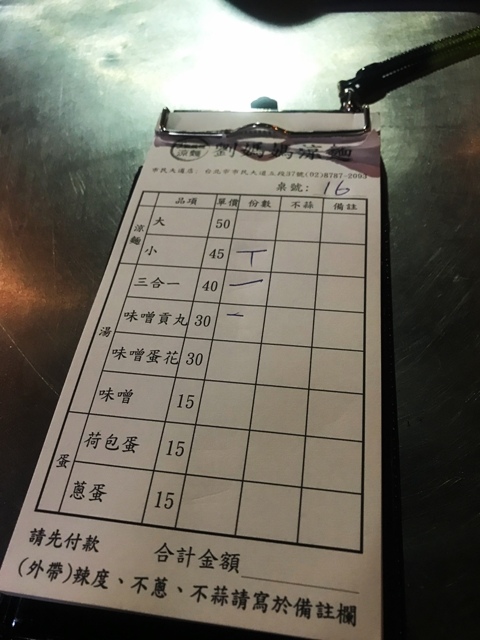 涼麵 劉媽媽涼麵
市民大道店：台北市市民大道五段37號(02)8787-2093
桌號：16
品項 單價 份數 不蒜 備註
涼麵 大 50
小 45 T
湯 三合一 40 一
味噌貢丸 30 一
味噌蛋花 30
味噌 15
蛋 荷包蛋 15
蔥蛋 15
請先付款 合計金額
(外帶)辣度、不蔥、不蒜請寫於備註欄